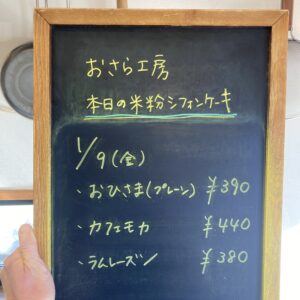 おさら工房
本日の米粉シフォンケーキ
1/9(金)
・おひさま(プレーン) ¥390
・カフェモカ ¥440
・ラムレーズン ¥380